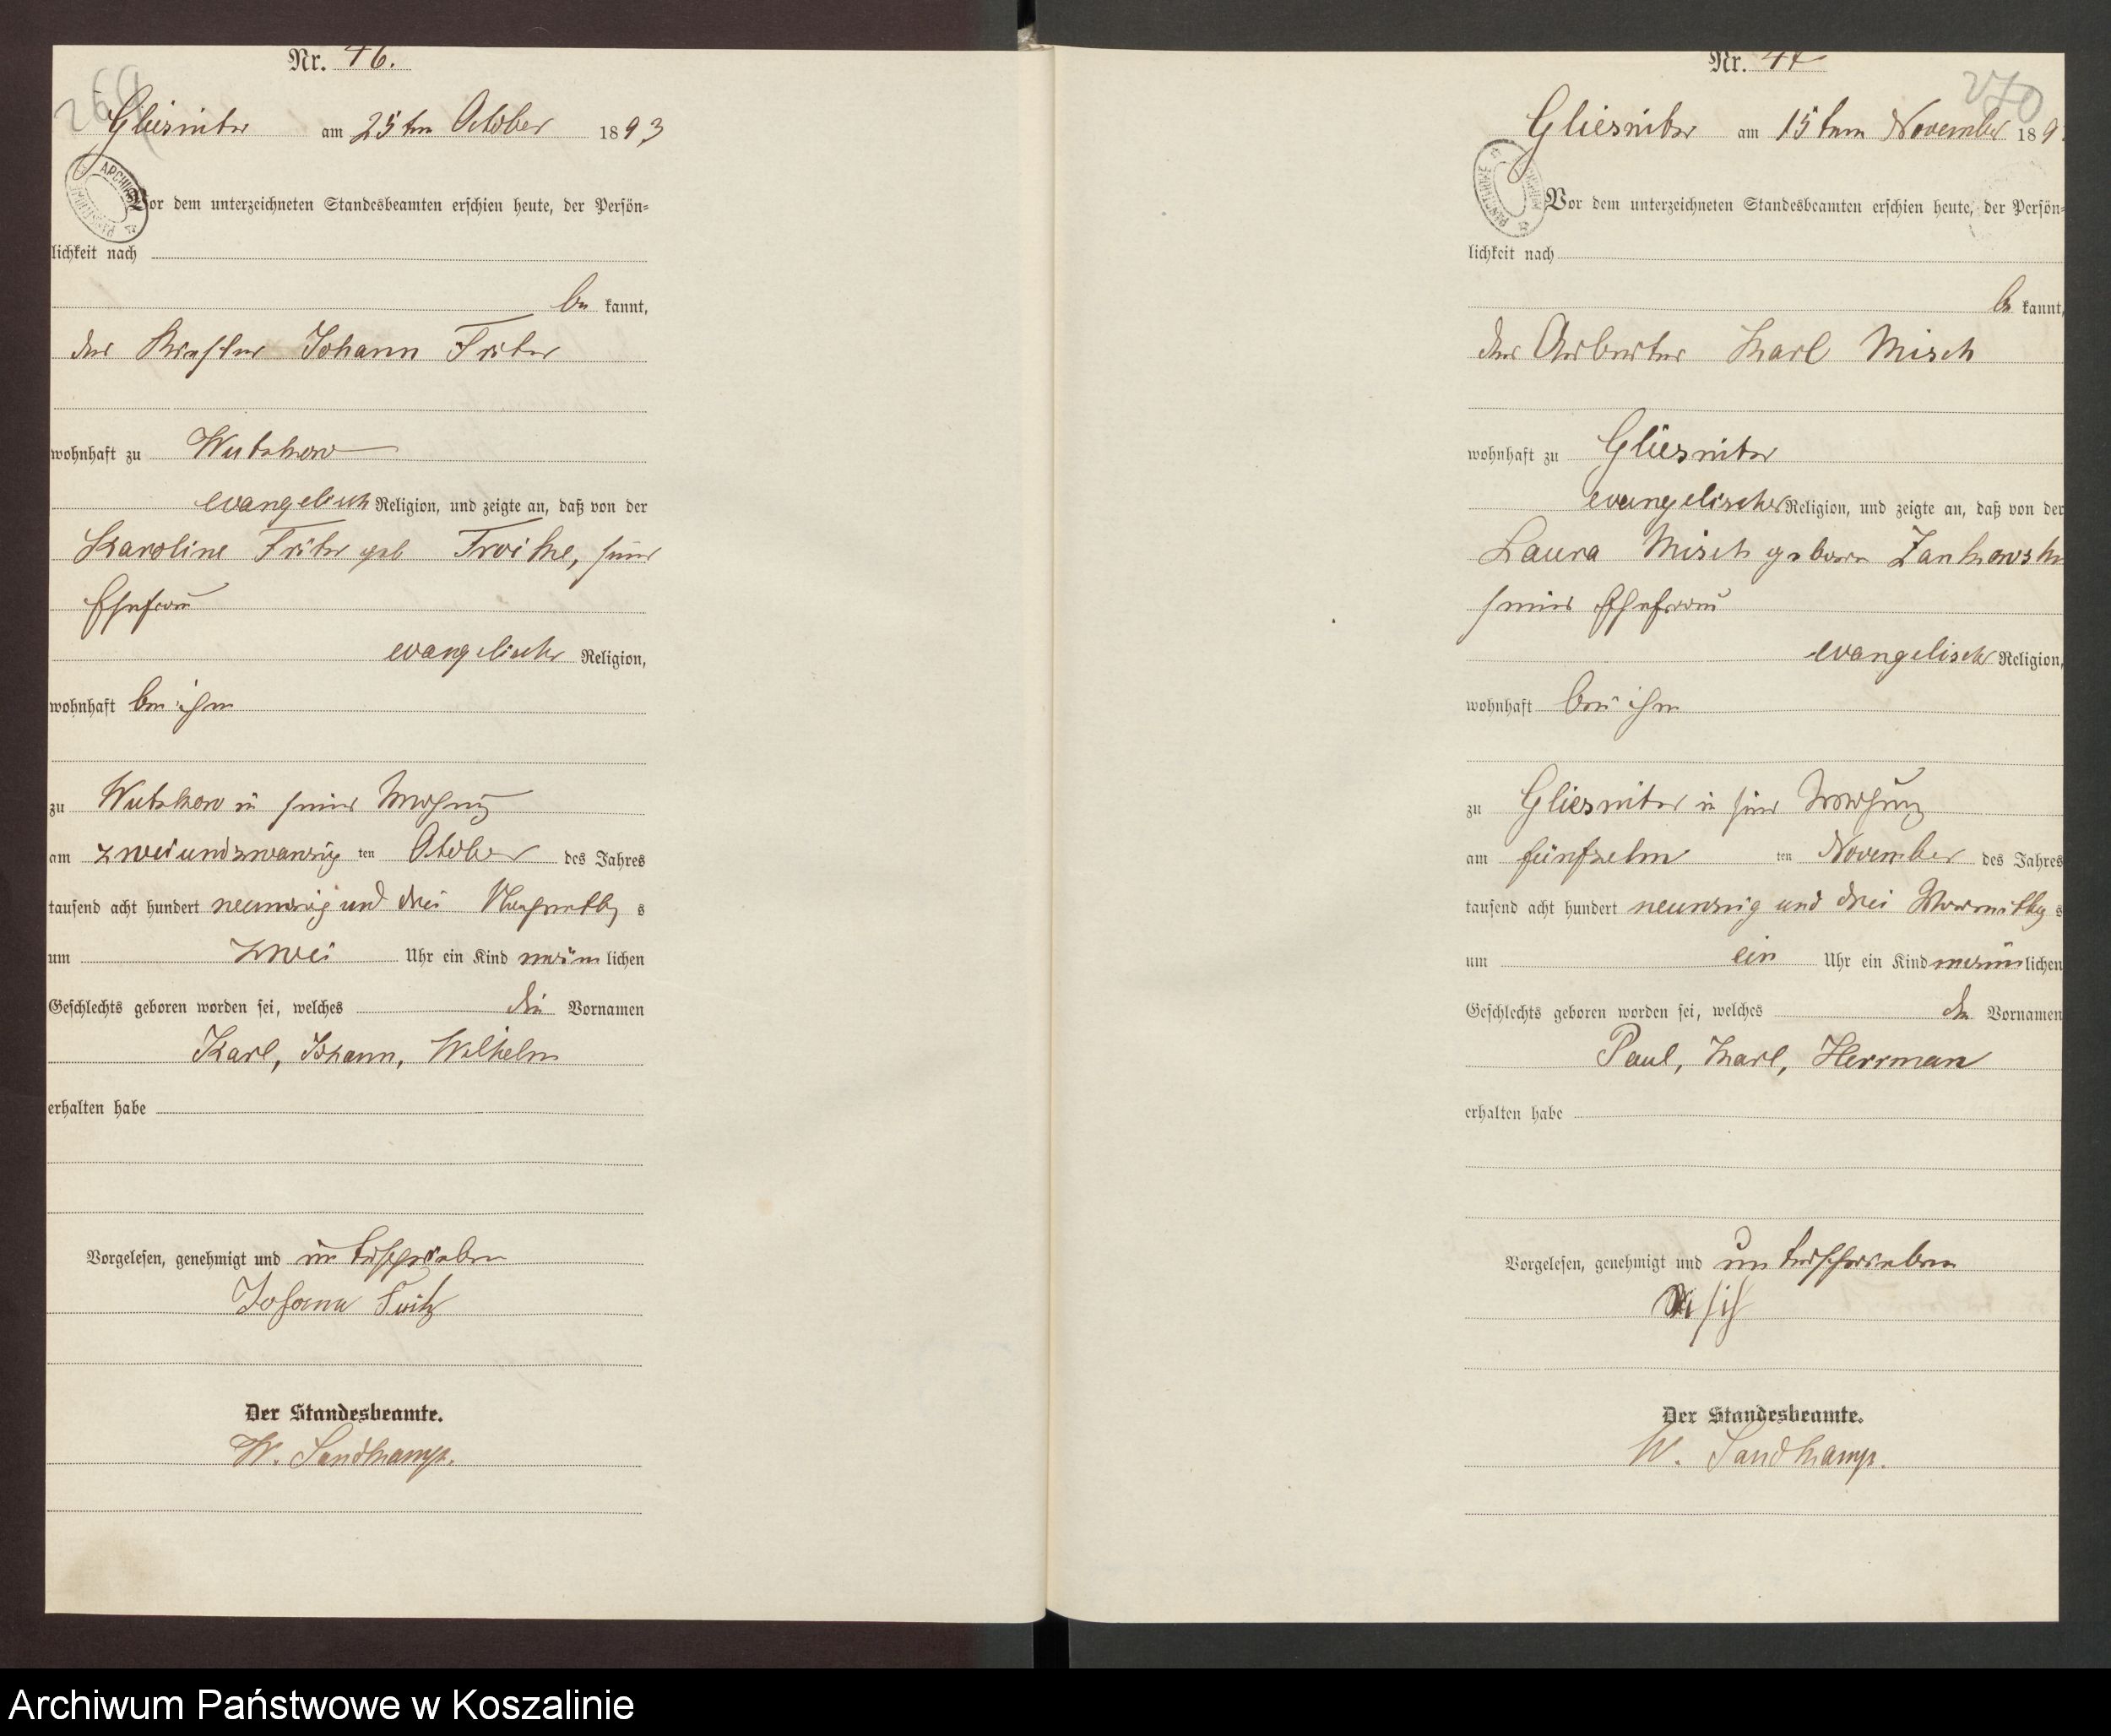 269
Nr. 46.
Gliesnitz am 25ten October 1893
Vor dem unterzeichneten Standesbeamten erschien heute, der Persön-
lichkeit nach
be kannt,
der Johann Fritz
wohnhaft zu Wutzkow
evangelisch Religion, und zeigte an, daß von der
Karoline geb Troike, seiner
Ehefrau
evangelischer Religion,
wohnhaft bei ihm
zu Wutzkow in seiner Wohnung
am zweiundzwanzig ten October des Jahres
tausend acht hundert neunzig und drei Nachmittag s
um zwei Uhr ein Kind männ lichen
Geschlechts geboren worden sei, welches die Vornamen
Karl, Johann, Wilhelm
erhalten habe
Vorgelesen, genehmigt und unterschrieben
Johann Fritz
Der Standesbeamte.
W. Sandkamp.
270
Nr. 47
Gliesnitz am 15ten November 189
Vor dem unterzeichneten Standesbeamten erschien heute, der Persön-
lichkeit nach
be kannt,
der Arbeiter Karl Misch
wohnhaft zu Gliesnitz
evangelischer Religion, und zeigte an, daß von der
Laura Misch geboren
seiner Ehefrau
evangelischer Religion,
wohnhaft bei ihm
zu Gliesnitz in seiner Wohnung
am fünfzehn ten November des Jahres
tausend acht hundert neunzig und drei Vormittag s
um ein Uhr ein Kind männ lichen
Geschlechts geboren worden sei, welches den Vornamen
Paul, Karl, Herrman
erhalten habe
Vorgelesen, genehmigt und unterschrieben
Der Standesbeamte.
W. Sandkamp.
Archiwum Państwowe w Koszalinie